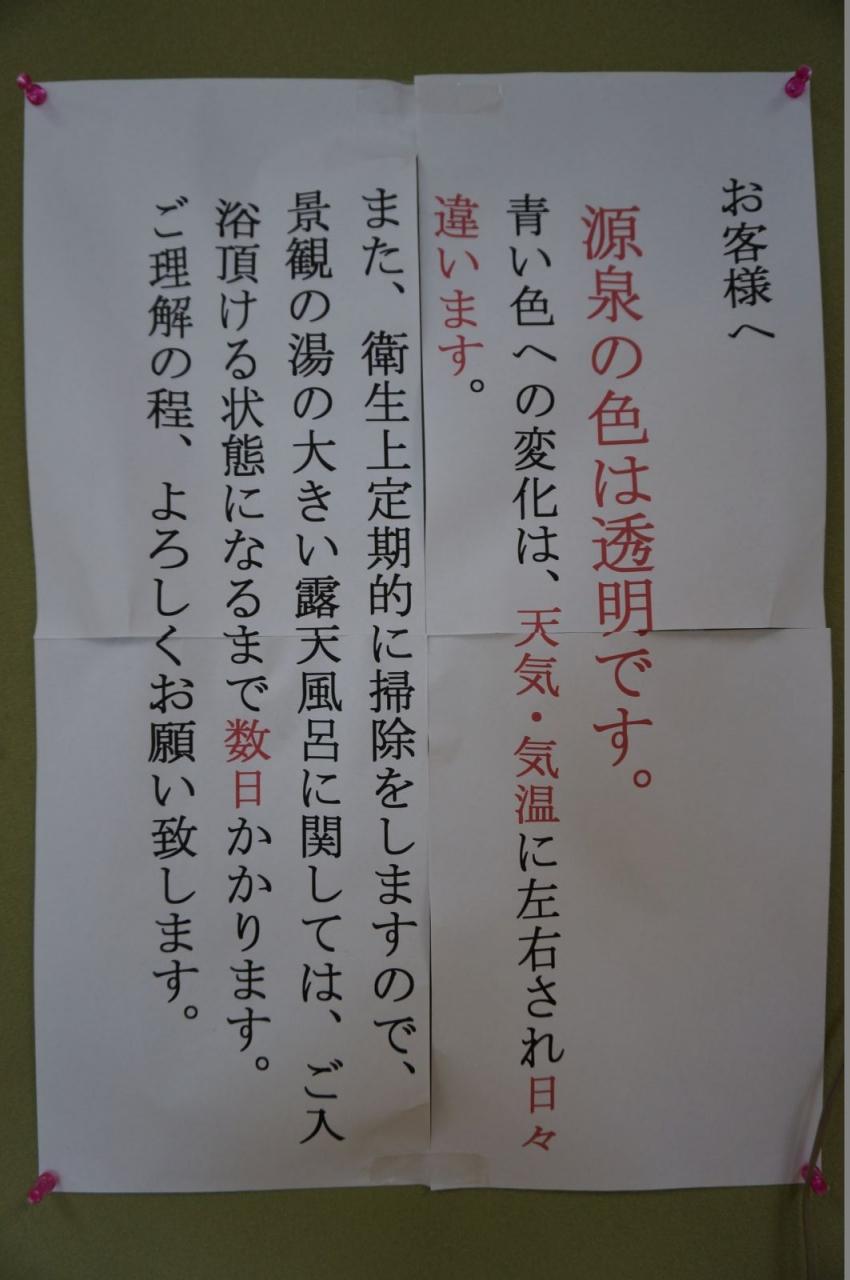 お客様へ
源泉の色は透明です。
青い色への変化は、天気・気温に左右され日々
違います。
また、衛生上定期的に掃除をしますので、
景観の湯の大きい露天風呂に関しては、ご入
浴頂ける状態になるまで数日かかります。
ご理解の程、よろしくお願い致します。